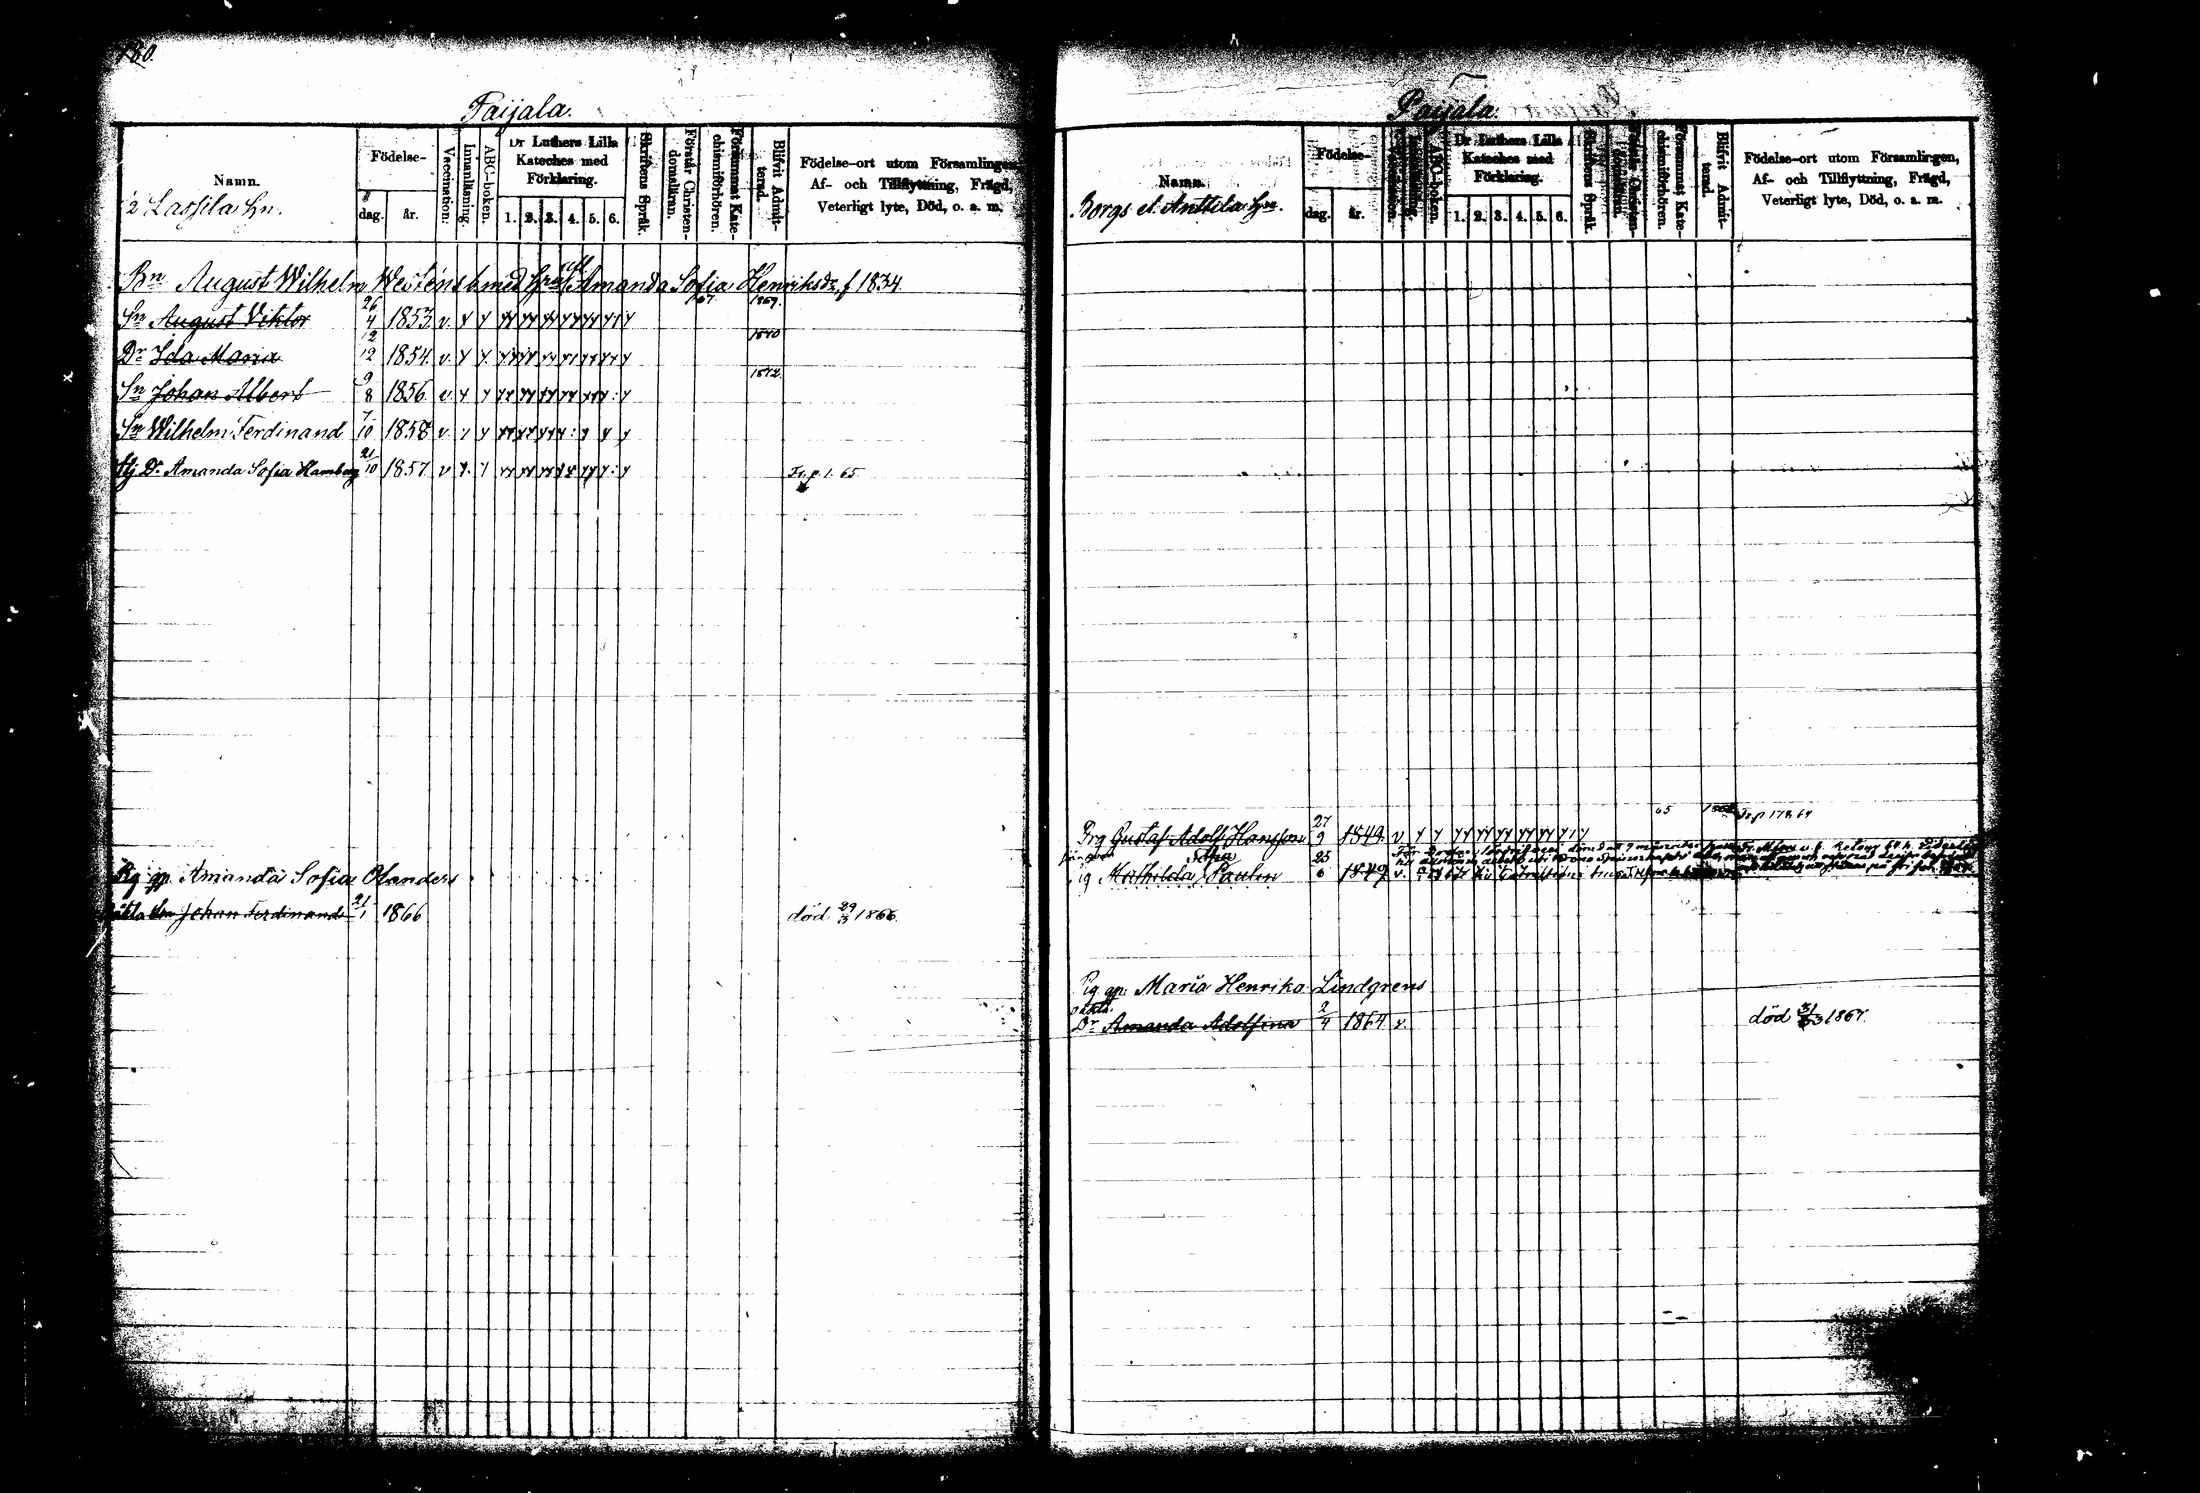 180.
Paijala.
Namn.
2 Lassila hn.
Födelse-
dag. år.
Vaccination:
Innanläsning.
ABC-boken.
Dr Luthers Lilla
Kateches med
Förklaring.
1. 2. 3. 4. 5. 6.
Skriftens Språk.
Förstår Christen-
domsläran.
Försummat Kate-
chismiförhören.
Blifvit Admit-
terad.
Födelse-ort utom Församlingen,
Af- och Tillflyttning, Frägd,
Veterligt lyte, Död, o. a. m.
Bn August Wilhelm Westéns b med Amanda Sofia Henriksdr f 1834.
Sn August Viktor 26/4 1853 v. 67. 1869.
Dr Ida Maria 12/12 1854. v. 1870
Sn Johan Albert 9/8 1856. v. 1872.
Sn Wilhelm Ferdinand 7/10 1858 v.
Dr. Amanda Sofia Hamberg 21/10 1857. v Fr. p. 1. 65.
Pig. gp. Amanda Sofia Olanders
oäkta Sn Johan Ferdinand 21/1 1866 död 29/3 1866.
Paijala.
Namn.
Borgs el. Anttila hn.
Födelse-
dag. år.
Vaccination:
Innanläsning.
ABC-boken.
Dr Luthers Lilla
Kateches med
Förklaring.
1. 2. 3. 4. 5. 6.
Skriftens Språk.
Förstår Christen-
domsläran.
Försummat Kate-
chismiförhören.
Blifvit Admit-
terad.
Födelse-ort utom Församlingen,
Af- och Tillflyttning, Frägd,
Veterligt lyte, Död, o. a. m.
Drg Gustaf Adolf Hansson 27/9 1849. v 65 Fr. p 178. 64
Pig Mathilda Paulin 25/6 1849 v.
Pig. gp. Maria Henrika Lindgrens
oäkta
Dr Amanda Adolfina 2/4 1864 v. död 31/3 1867.